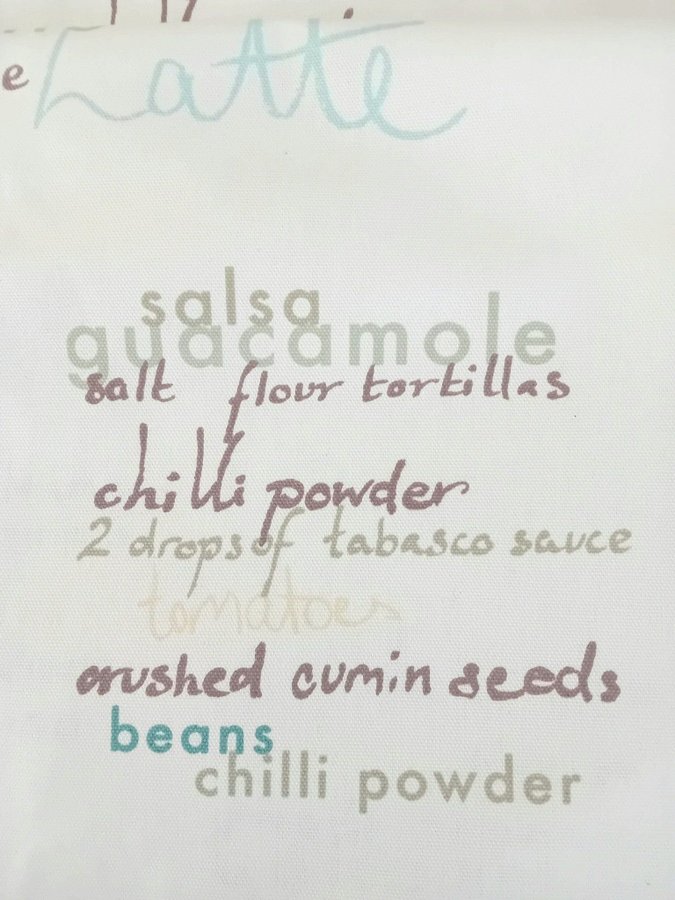 e Latte
salsa
guacamole
salt flour tortillas
chilli powder
2 drops of tabasco sauce
tomatoes
crushed cumin seeds
beans
chilli powder